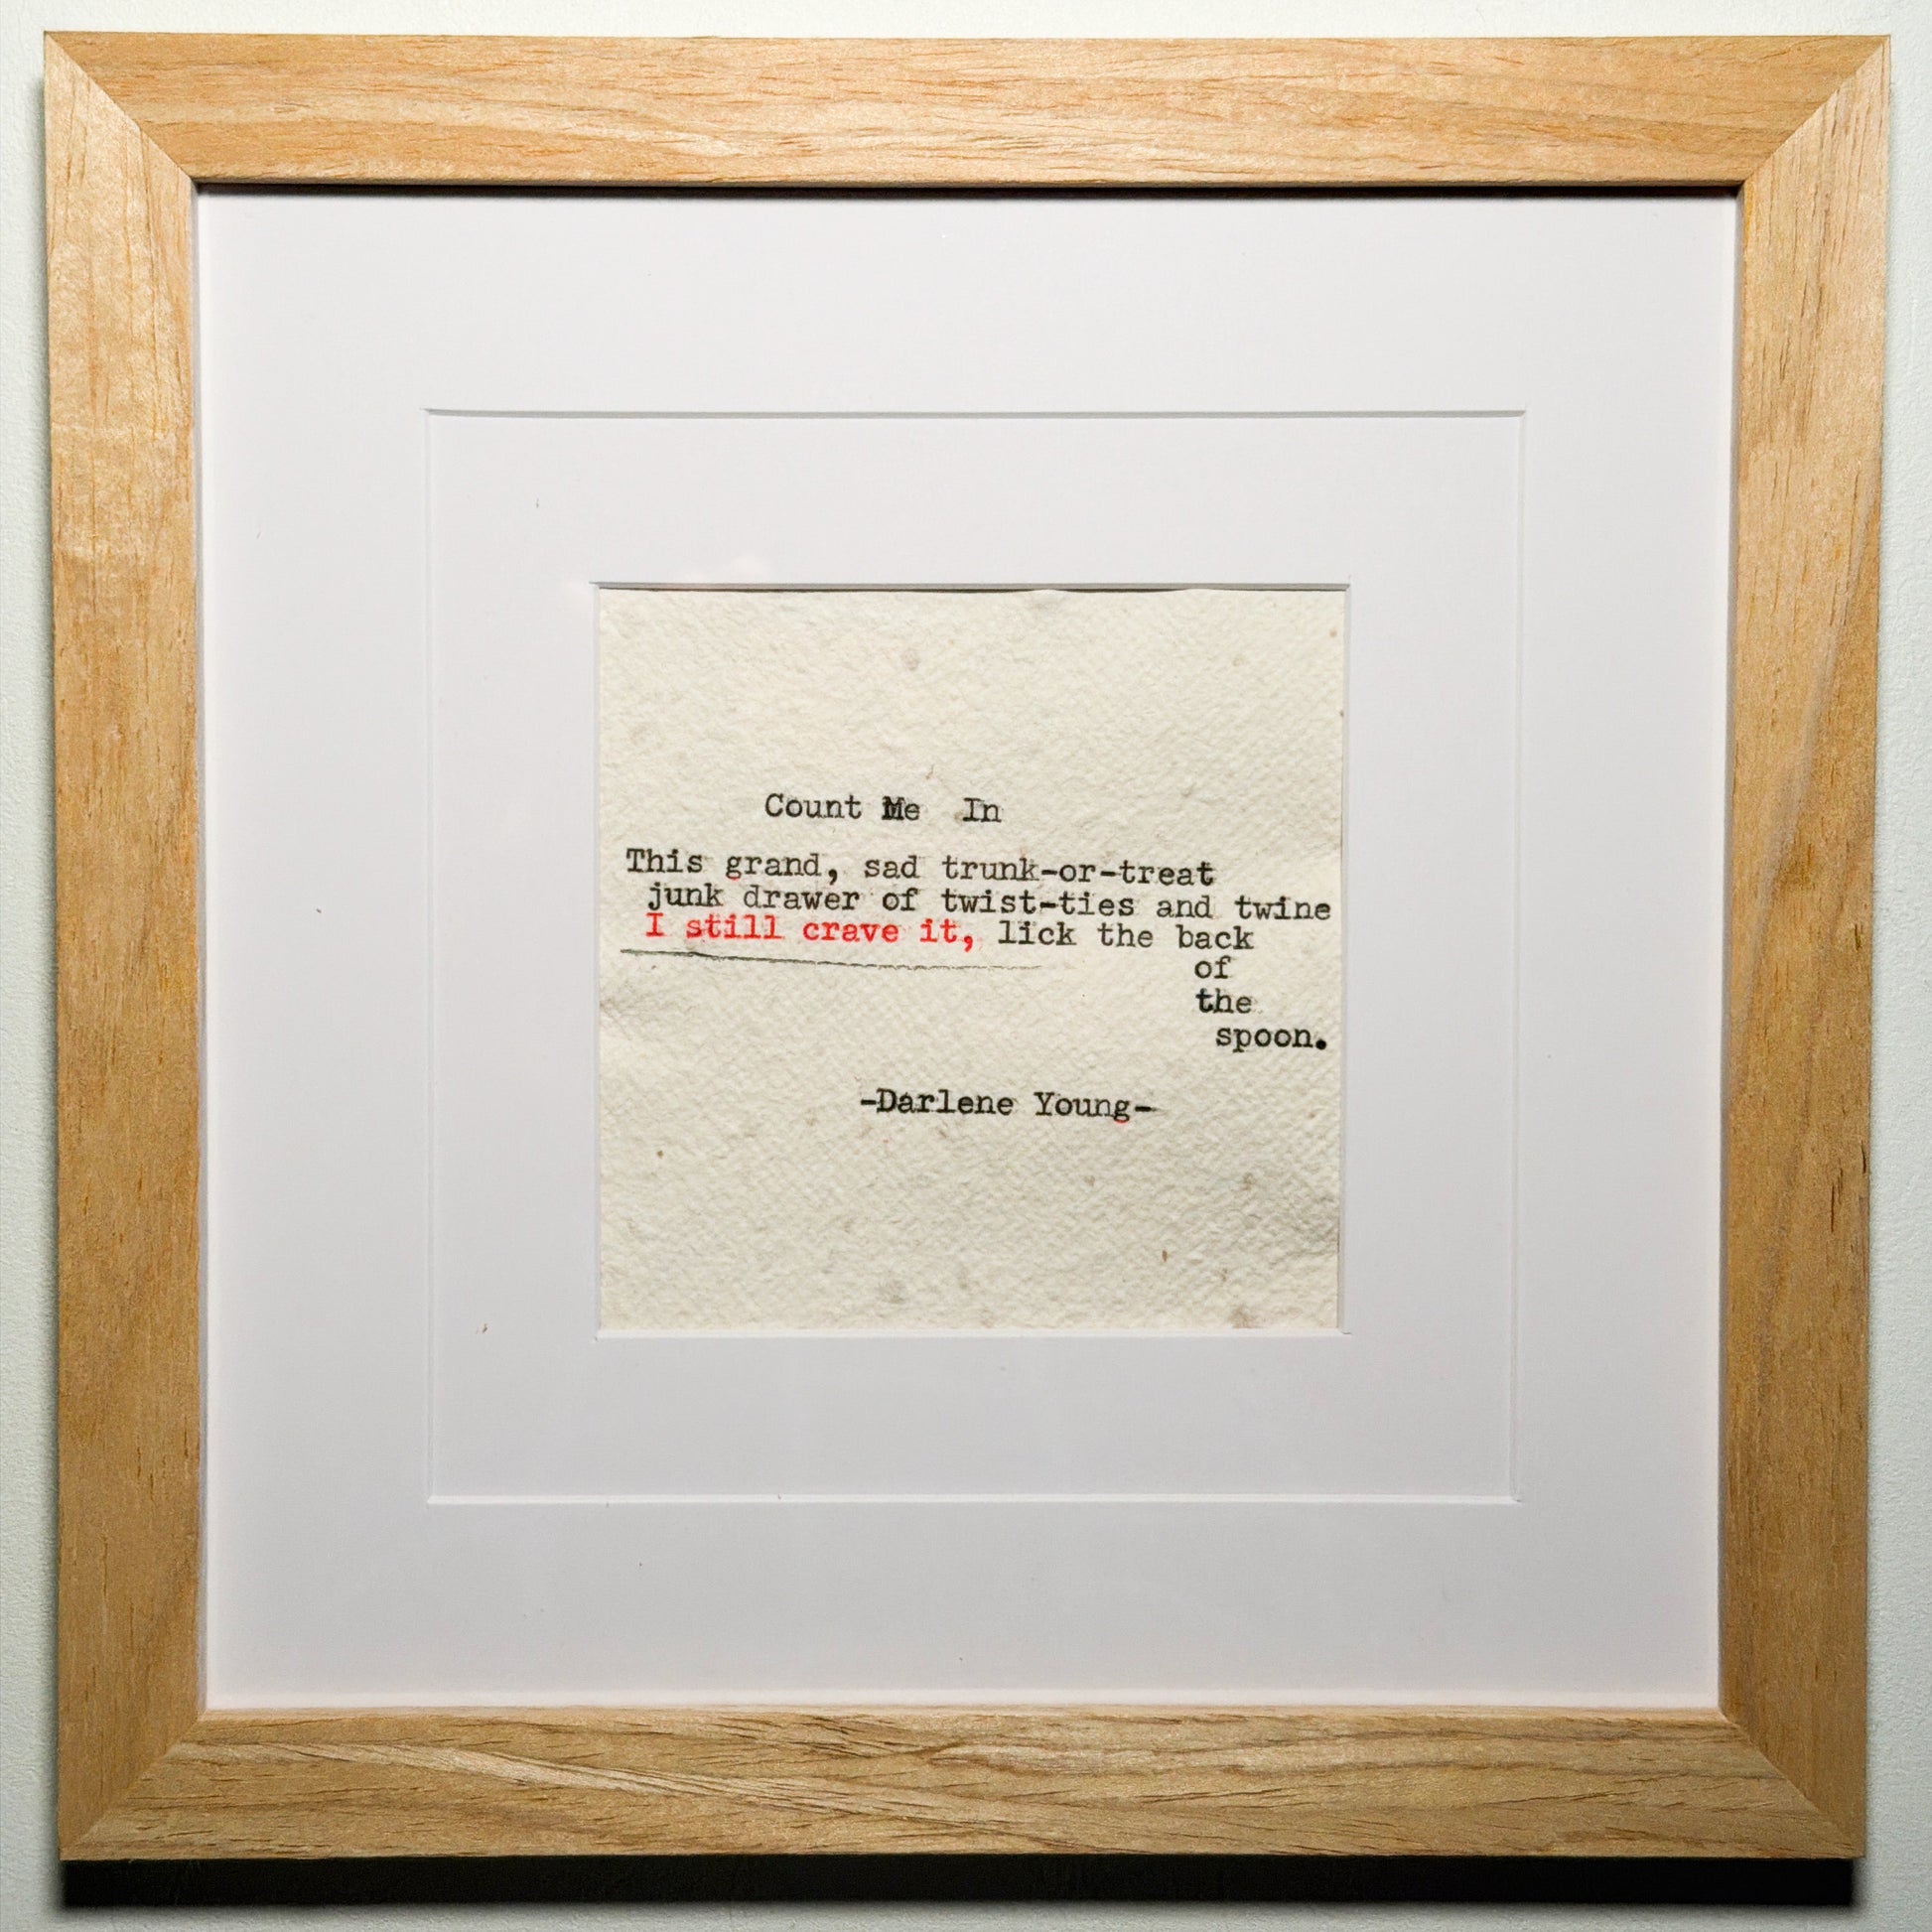 Count Me In
This grand, sad trunk-or-treat
junk drawer of twist-ties and twine
I still crave it, lick the back
of
the
spoon.
-Darlene Young-